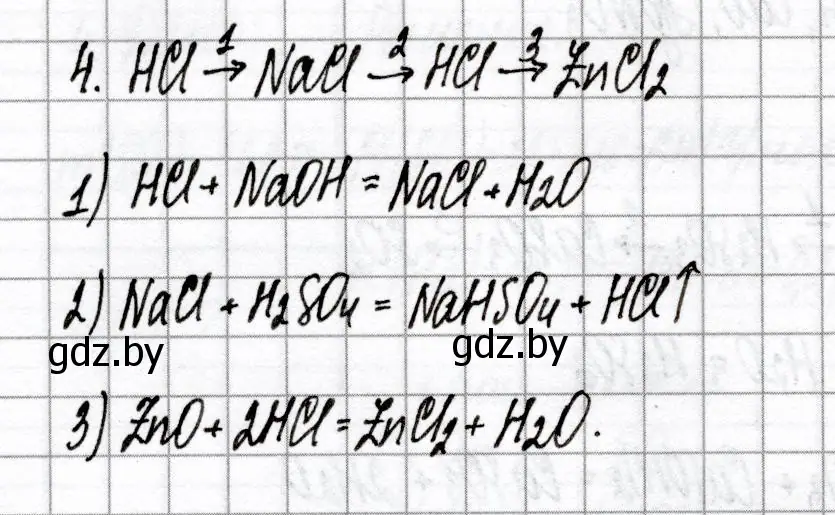 4. HCl →¹ NaCl →² HCl →³ ZnCl₂
1) HCl + NaOH = NaCl + H₂O
2) NaCl + H₂SO₄ = NaHSO₄ + HCl↑
gdz.by gdz.by
3) ZnO + 2HCl = ZnCl₂ + H₂O.